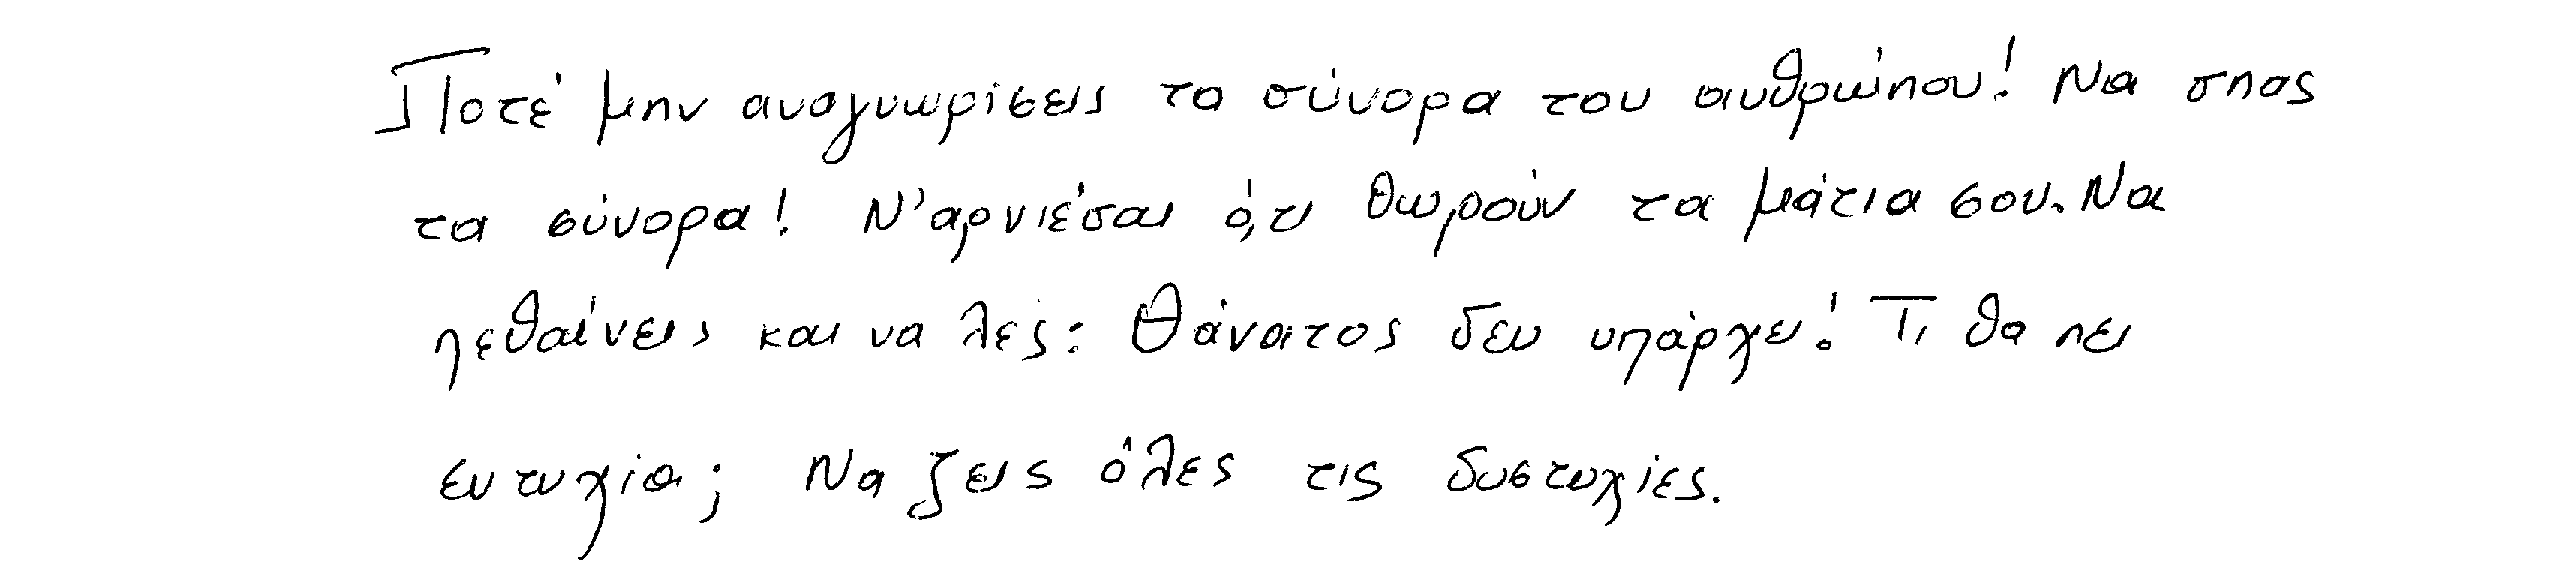 Ποτέ μην αναγνωρίσεις τα σύνορα του ανθρώπου! Να σπας
τα σύνορα! Ν'αρνιέσαι ό,τι θωρούν τα μάτια σου. Να
πεθαίνεις και να λες: Θάνατος δεν υπάρχει! Τι θα πει
ευτυχία; Να ζεις όλες τις δυστυχίες.